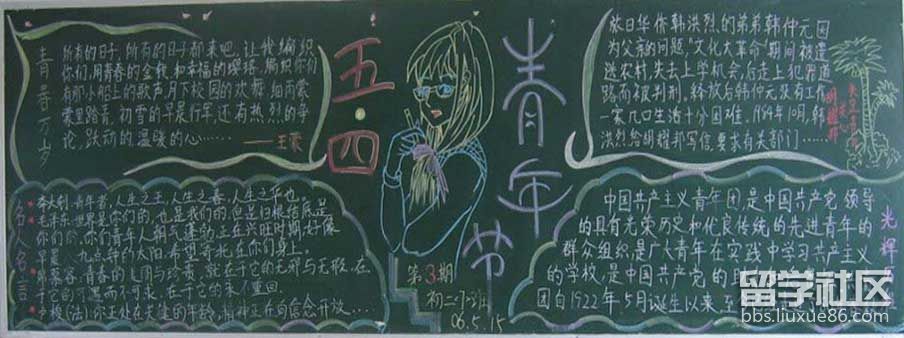 青春万岁
所有的日子,所有的日子都来吧,让我编织
你们,用青春的金线,和幸福的璎珞,编织你们
有那小船上的歌声,月下校园的欢舞,细雨蒙
蒙里踏青,初雪的早晨行军,还有热烈的争
论,跃动的温暖的心……
——王蒙
五·四
青年节
旅日华侨韩洪烈的弟弟韩仲元因
为父亲的问题,"文化大革命"期间被遣
送农村,失去上学机会,后走上犯罪道
路而被判刑。释放后韩仲元没有工作
一家几口生活十分困难。1984年10月,韩
洪烈给胡耀邦写信,要求有关部门……
胡耀邦
名人名言
李大钊:青年者,人生之王,人生之春,人生之华也
毛泽东:世界是你们的,也是我们的,但是归根结底是
你们的。你们青年人朝气蓬勃,正在兴旺时期,好像
早晨八九点钟的太阳,希望寄托在你们身上。
青春的美丽与珍贵,就在于它的无邪与无瑕,在
于它的可遇而不可求,在于它的永不重回
第3期
初二
06.5.15
光辉
中国共产主义青年团是中国共产党领导
的具有光荣历史和优良传统的先进青年的
群众组织,是广大青年在实践中学习共产主义
的学校,是中国共产党的
团自1922年5月诞生以来
留学社区
bbs.liuxue86.com